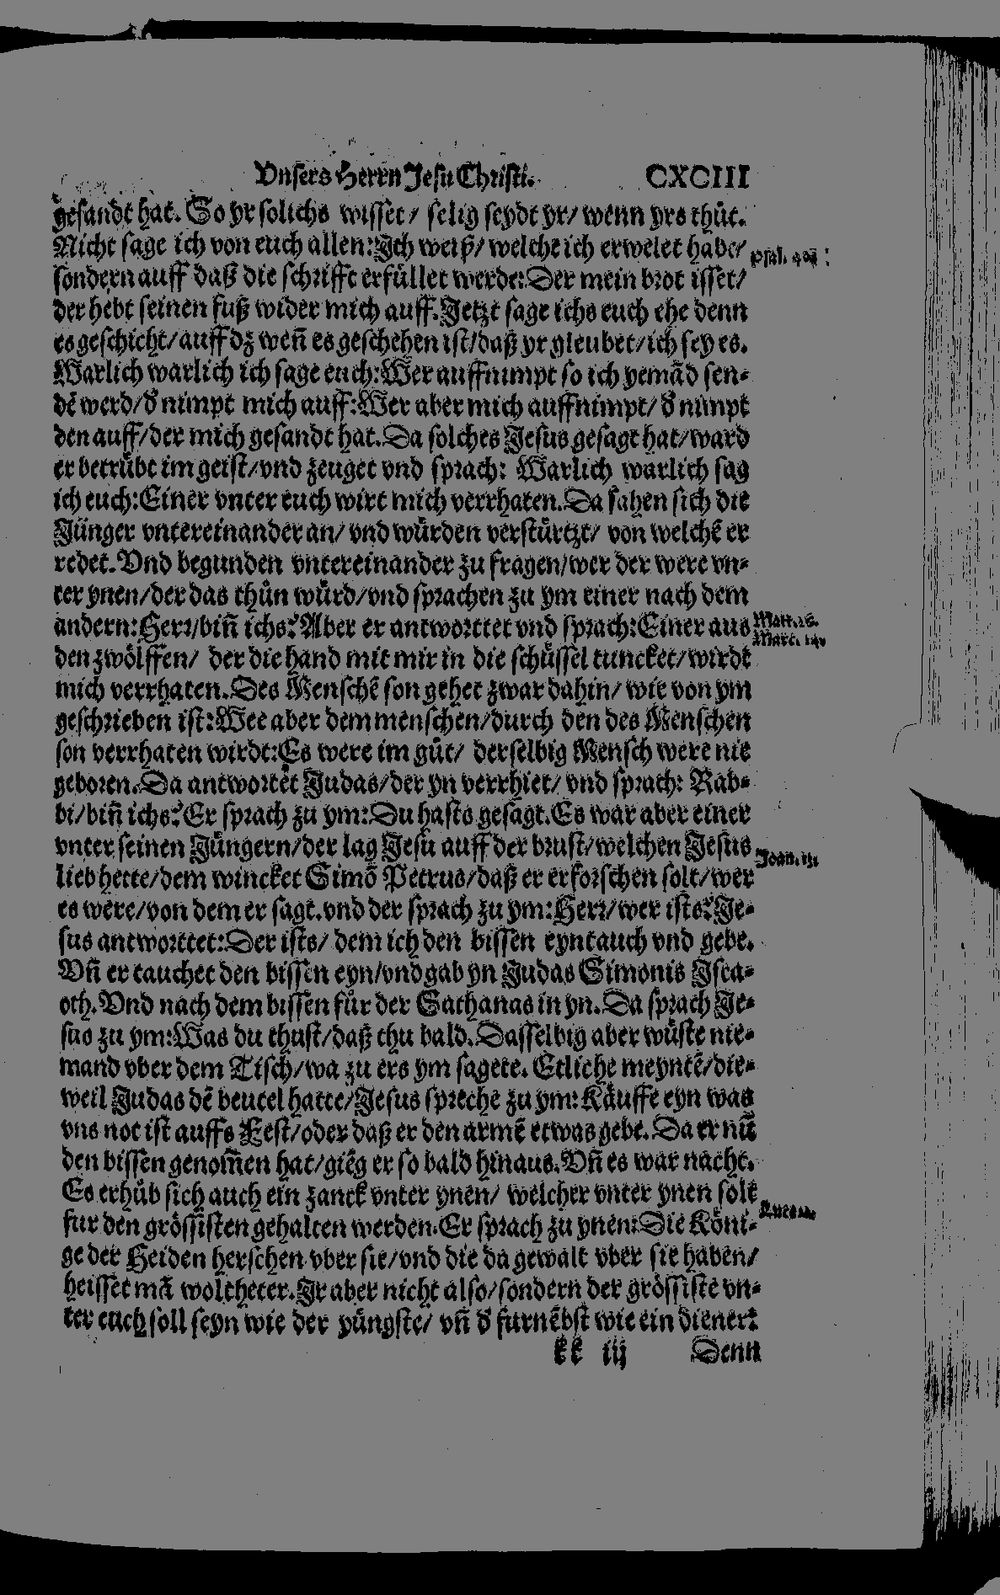 Vnsers Herrn Jesu Christi. CXCIII
gesandt hat. So yr solichs wisset/ selig seydt yr/ wenn yrs thůt.
Nicht sage ich von euch allen: Ich weiß/ welche ich erwelet habe/
sondern auff daß die schrifft erfüllet werde: Der mein brot isset/
der hebt seinen fuß wider mich auff. Jetzt sage ichs euch ehe denn
es geschicht/ auff dz weñ es geschehen ist/ daß yr gleubet/ ich sey es.
Warlich warlich ich sage euch: Wer auffnimpt so ich yemãd sen-
dẽ werd/ d' nimpt mich auff: Wer aber mich auffnimpt/ d' nimpt
den auff/ der mich gesandt hat. Da solches Jesus gesagt hat/ ward
er betrübt im geist/ vnd zeuget vnd sprach: Warlich warlich sag
ich euch: Einer vnter euch wirt mich verrhaten. Da sahen sich die
Jünger vntereinander an/ vnd würden verstürtzt/ von welchẽ er
redet. Vnd begunden vntereinander zu fragen/ wer der were vn-
ter ynen/ der das thůn würd/ vnd sprachen zu ym einer nach dem
andern: Herr/ biñ ichs? Aber er antworttet vnd sprach: Einer aus
Matt. 26.
Marc. 14.
den zwölffen/ der die hand mit mir in die schüssel tuncket/ wirdt
mich verrhaten. Des Menschẽ son gehet zwar dahin/ wie von ym
geschrieben ist: Wee aber dem menschen/ durch den des Menschen
son verrhaten wirdt: Es were im gůt/ derselbig Mensch were nie
geboren. Da antwortet Judas/ der yn verrhiet/ vnd sprach: Rab-
bi/ biñ ichs? Er sprach zu ym: Du hasts gesagt. Es war aber einer
vnter seinen Jüngern/ der lag Jesu auff der brust/ welchen Jesus
lieb hette/ dem wincket Simõ Petrus/ daß er erforschen solt/ wer
es were/ von dem er sagt. vnd der sprach zu ym: Herr/ wer ists? Je-
sus antworttet: Der ists/ dem ich den bissen eyntauch vnd gebe.
Vñ er tauchet den bissen eyn/ vnd gab yn Judas Simonis Isca-
oth. Vnd nach dem bissen fůr der Sathanas in yn. Da sprach Je-
sus zu ym: Was du thust/ daß thu bald. Dasselbig aber wůste nie-
mand vber dem Tisch/ wa zu ers ym sagete. Etliche meyntẽ/ die-
weil Judas dẽ beutel hatte/ Jesus spreche zu ym: Käuffe eyn was
vns not ist auffs Fest/ oder daß er den armẽ etwas gebe. Da er nũ
den bissen genom̃en hat/ giẽg er so bald hinaus. Vñ es war nacht.
Es erhůb sich auch ein zanck vnter ynen/ welcher vnter ynen solt
fur den grössisten gehalten werden. Er sprach zu ynen: Die Köni-
ge der Heiden herschen vber sie/ vnd die da gewalt vber sie haben/
heisset mã woltheter. Ir aber nicht also/ sondern der grössiste vn-
ter euch soll seyn wie der yüngste/ vñ d' furnẽbst wie ein diener:
kk iij Denn